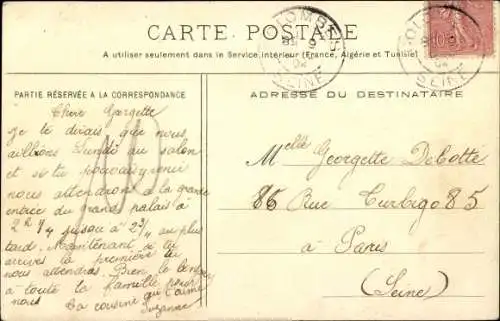 CARTE POSTALE
A utiliser seulement dans le Service intérieur (France, Algérie et Tunisie)
COLOMBES
9
04
SEINE
COLOMBES
9
04
SEINE
10
PARTIE RÉSERVÉE A LA CORRESPONDANCE
ADRESSE DU DESTINATAIRE
Chère Georgette
je te dirais que nous
aillions Lundi au salon
et si tu pouvais y venir
nous attendrons à la grande
entrée du grand palais à
2h 1/4 jusqu'à 2 3/4 au plus
tard. Maintenant si tu
arrives la première tu
nous attendras. Bien le bonjour
à toute la famille pour
nous
ta cousine qui t'aime
Suzanne
Melle Georgette Debotte
85 Rue Turbigo 85
à Paris
(Seine)